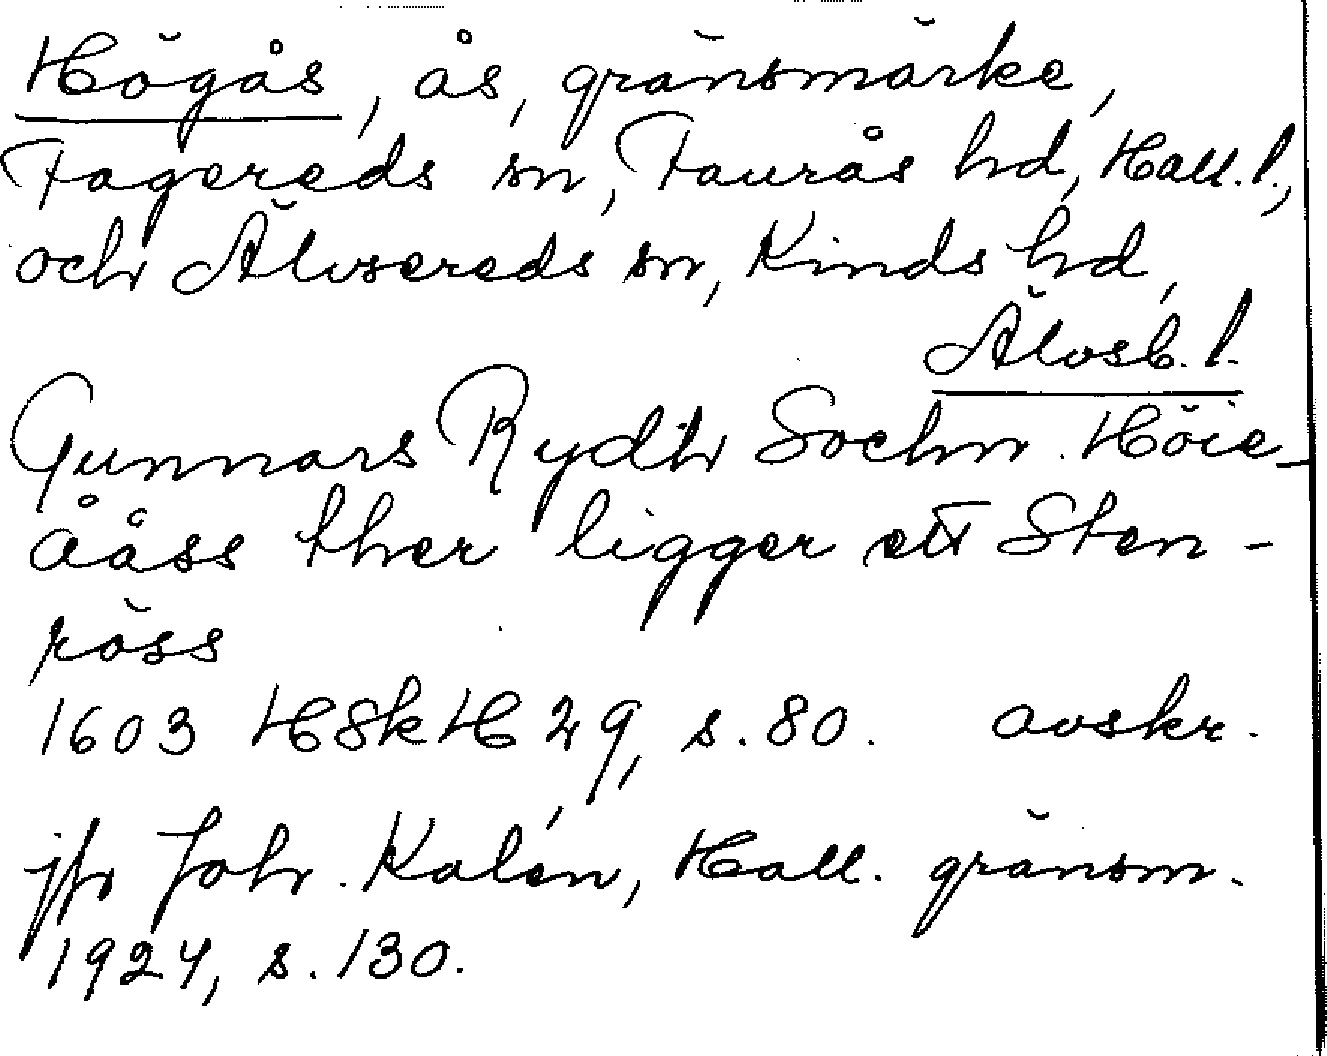 Högås, ås, gränsmärke,
Fagereds sn, Faurås hd, Hall. l.,
och Älvsereds sn, Kinds hd,
Älvsb. l.
Gunnars Rydh Sochn. Höie-
ååss ther ligger ett Sten-
röss
1603 HSkH 29, s. 80. avskr.
jfr Joh. Kalén, Hall. gränsm.
1924, s. 130.